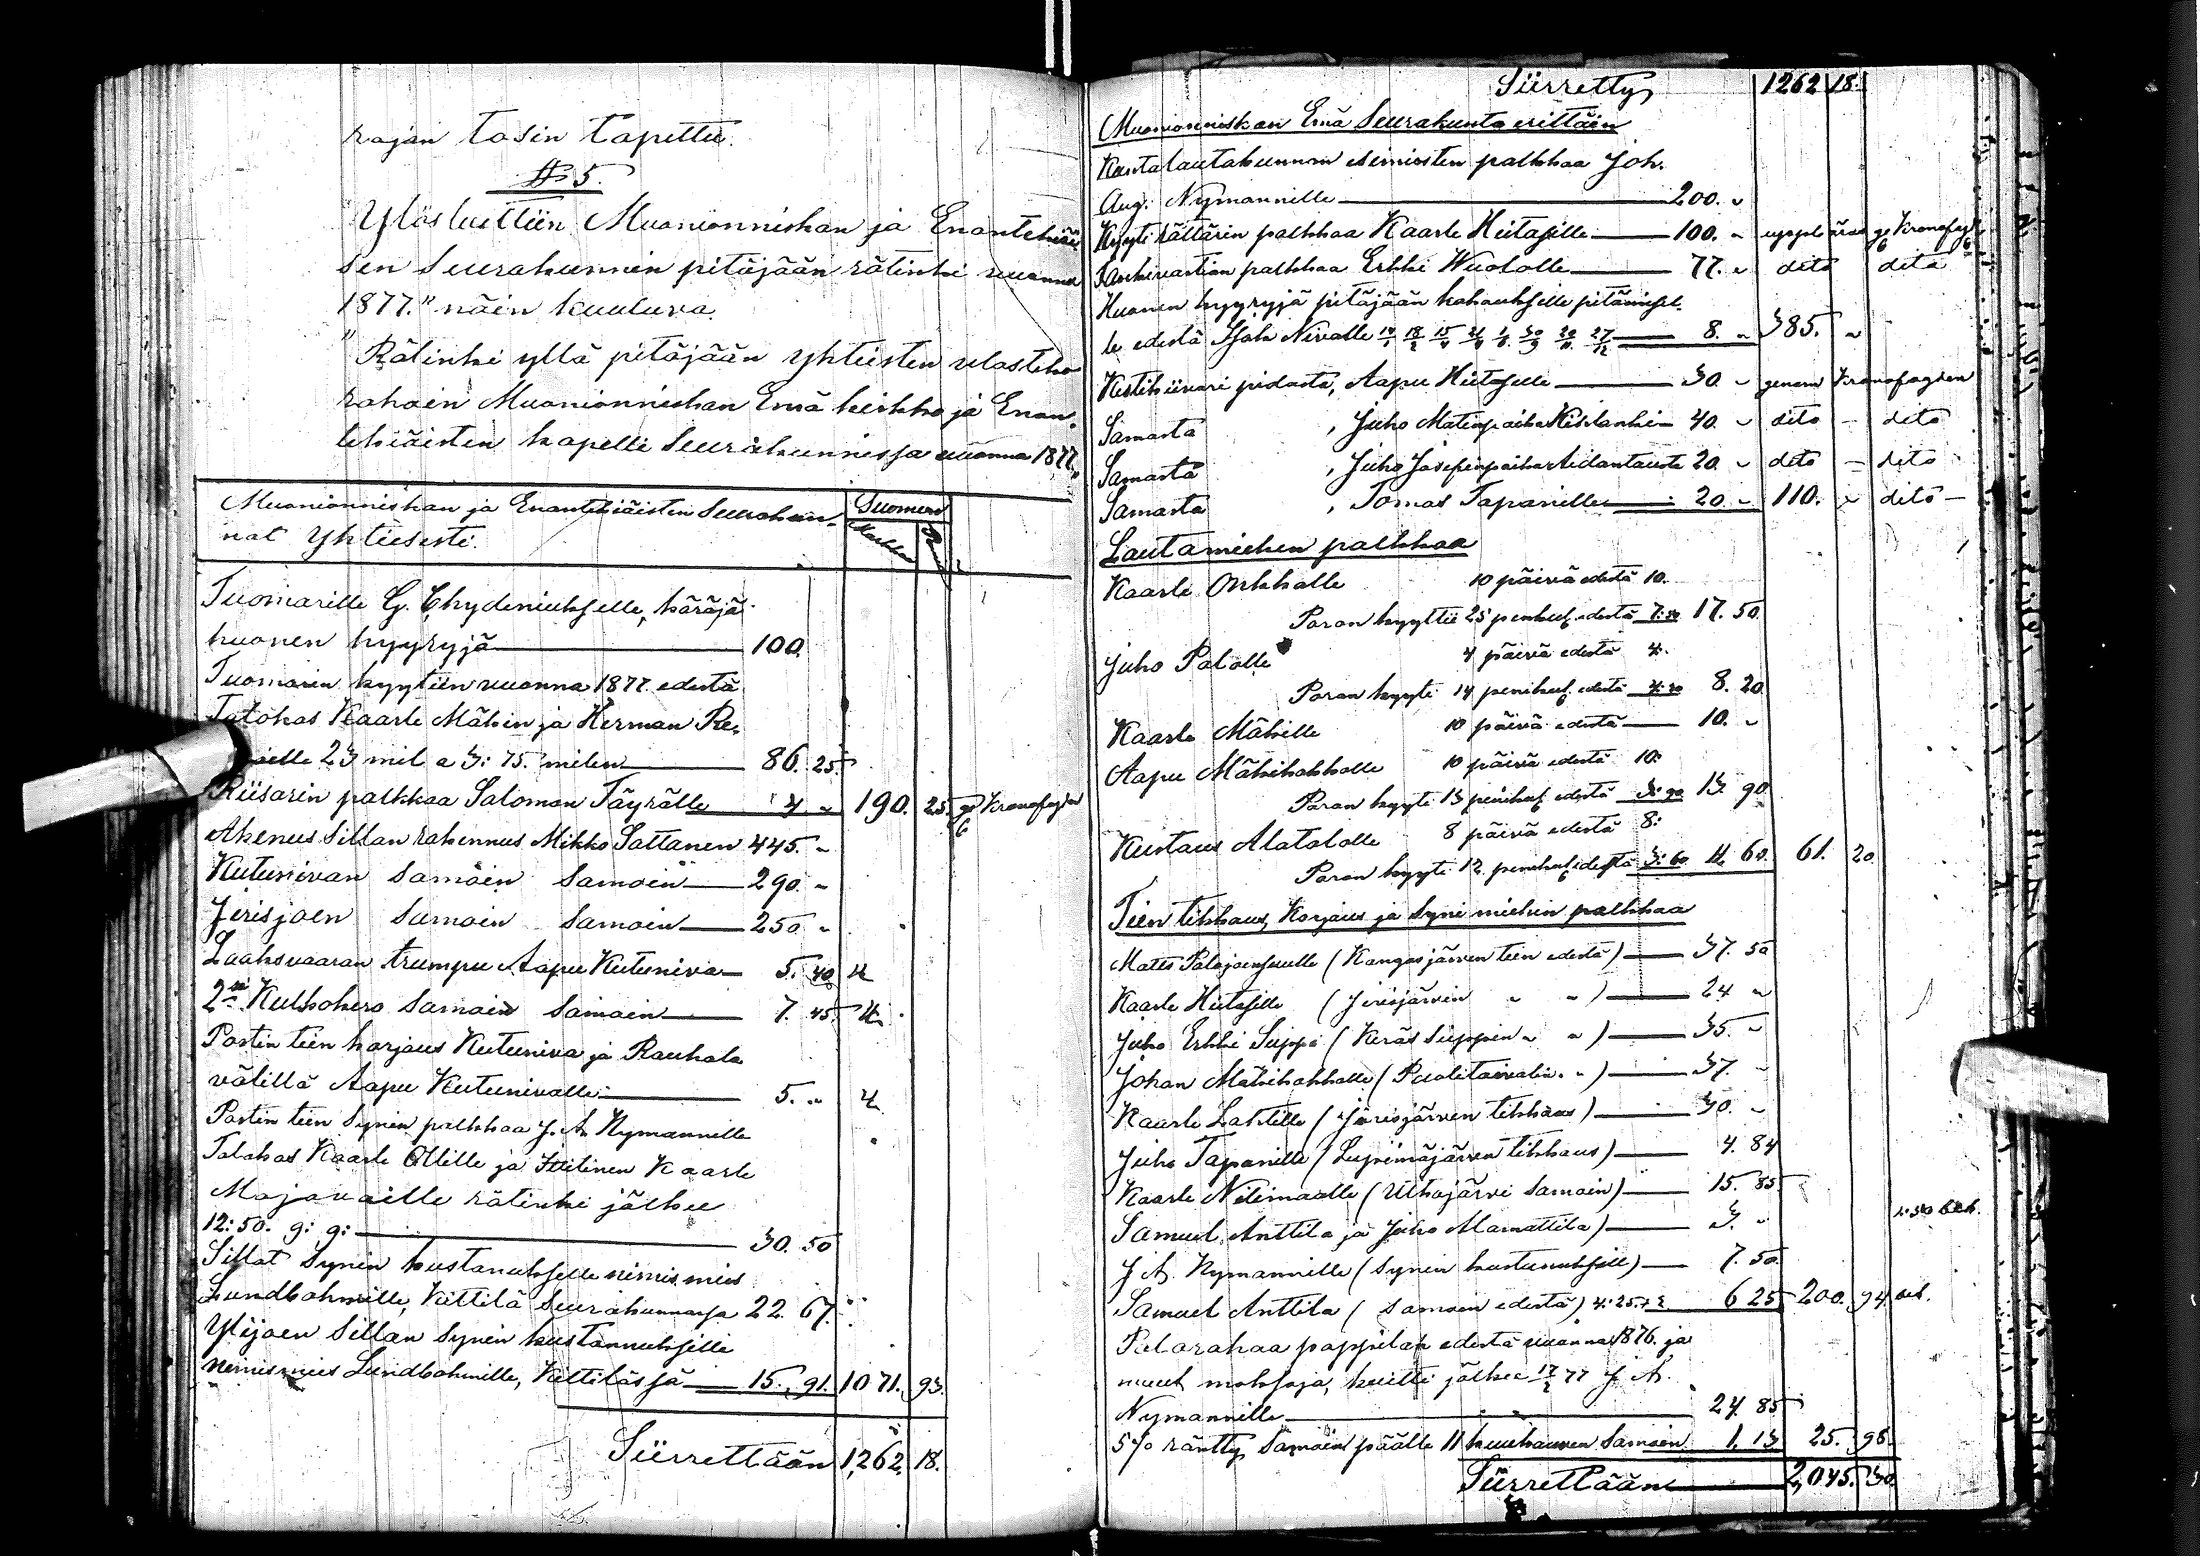 rajan tasin tapettu.
§ 5.
Ylösluettiin Muonionniskan ja Enontekiäi
sen Seurakunnin pitäjään rätinki vuonna
1877." näin kuuluva.
"Rätinki yllä pitäjään yhteisten ulosteko
rahain Muonionniskan Emä kirkko ja Enon-
tekiäisten kapelli Seurakunnissa vuonna 1877."
Muonionniskan ja Enontekiäisten Seurakun-
nat Yhteisesti.
Suomen
Markka
Tuomarille G. Chydeniukselle, käräjä
huonen hyyryjä 100.
Tuomarin kyytiin vuonna 1877 edestä
Talokas Kaarle Mäkin ja Herman Re-
23 mil a 3: 75. milen 86. 25
Riisarin palkkaa Saloman Täyrälle 4 " 190. 25 ge Kronofogden
Akenus Sillan rakennus Mikko Sattanen 445. "
Kutunivan Samoin Samoin 290 "
Jerisjoen Samoin Samoin 250 "
Laaksvaaran trumpu Aapu Kutuniva 5. 40
2si Kulkokero Samoin Samoin 7. 45
Postin teen korjaus Kutuniva ja Rauhala
välillä Aapu Kutunivalle 5. "
Postin teen Synin palkkaa J. A. Nymannille
Talokas Kaarle Ollille ja Itillinen Kaarle
Majavaille rätinki jälkee
12:50. 9: 9: 30. 50
Sillat Synin kustanukselle nimismies
Lundbohmille, Kittilä Seurakunnassa 22. 67.
Ylijoen Sillan Synin kustannukselle
nimismies Lundbohmille, Kittilässä 15. 91. 1071. 93.
Siirrettään 1,262. 18.
Siirretty 1262 18.
Muonionniskan Emä Seurakunta erittäin
Kuntalautakunnan esimiesten palkkaa Joh.
Aug. Nymannille 200. "
Kyyti rättärin palkkaa Kaarle Hietaselle 100. "
palkkaa Erkki Wuotolle 77. " dito dito
Huonen hyyryjä pitäjään kokouksille pitämisel-
le edestä Isak Nivalle 8. " 385. "
Kestikiivari pidosta, Aapu Hietaselle 30. " genom Kronofogden
Samasta , Juho Matinpoika Kihlanki 40. " dito - dito
Samasta , Juho Josefinpoika 20. " dito - dito
Samasta , Tomas Tapanille 20. " 110. " dito -
Lautamiehen palkkaa
Kaarle Orhkalle 10 päivä edestä 10.
Poron kyyttii 25 penkul. edestä 7:50 17. 50
Juho Palolle 4 päivä edestä 4.
Poron kyyti 14 penikul. edestä 4:20 8. 20
Kaarle Mäkille 10 päivä edestä 10. "
Aapu Mäkihakkalle 10 päivä edestä 10:
Poron kyyti 13 penikul edestä 3:90 13 90
Kustaus Alatalolle 8 päivä edestä 8:
Poron kyyti 12 penikul edestä 3:60 11 60. 61. 20.
Tien tikkaus, Korjaus ja Syni miehin palkkaa
Mates Palojoensuulle (Kangasjärven teen edestä) 37. 50
Kaarle Hietaselle (Jerisjärvin " " ) 24 "
Juho Erkki Sieppi (Keräs Sieppin " " ) 35. "
Johan Mäkihakkalle (Puolitaivalin. " ) 37. "
Kaarle Lahtille (Jerisjärven tikkaus) 30. "
Juho Tapanille ( tikkaus) 4. 84
Kaarle Nilimaalle (Utkojärvi Samoin) 15. 85
Samuel Anttila ja Juho Mamattila) 3. "
J A. Nymannille (Synin kustanuksill) 7. 50
Samuel Anttila ( Samoin edestä) 4:25.+2. 6 25 200. 94
Palorahaa pappilan edestä vuonna 1876. ja
muut maksoja, kuitti jälkee 17/2 77 J A.
Nymannille 24 85
5% ränttz Samoin päälle 11 kuukauven Samoin 1. 13 25. 98.
Siirrettään 2,045. 30.